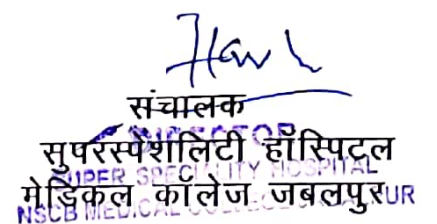 संचालक
DIRECTOR
सुपरस्पेशलिटी हॉस्पिटल
SUPER SPECIALITY HOSPITAL
मेडिकल कॉलेज जबलपुर
NSCB MEDICAL COLLEGE JABALPUR